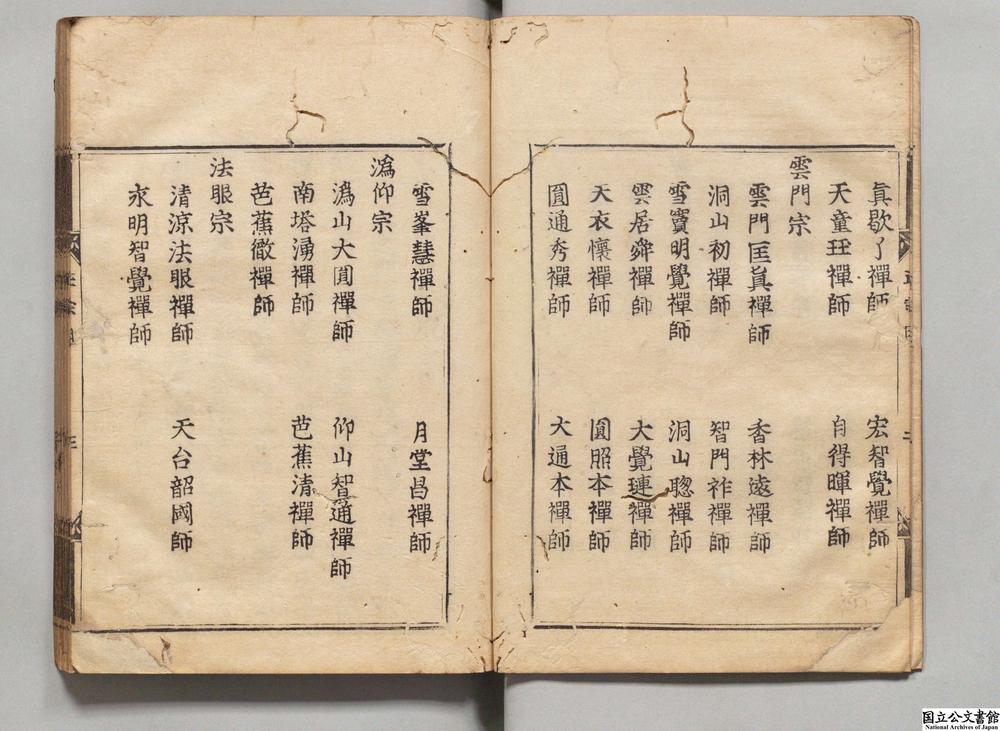 真歇了禪師　宏智覺禪師
天童珏禪師　自得暉禪師
雲門宗
雲門匡眞禪師　香林遠禪師
洞山初禪師　智門祚禪師
雪竇明覺禪師　洞山聦禪師
雲居舜禪師　大覺璉禪師
天衣懷禪師　圓照本禪師
圓通秀禪師　大通本禪師
雪峯慧禪師　月堂昌禪師
溈仰宗
溈山大圓禪師　仰山智通禪師
南塔湧禪師　芭蕉清禪師
芭蕉徹禪師
法眼宗
清涼法眼禪師　天台韶國師
永明智覺禪師
国立公文書館
National Archives of Japan